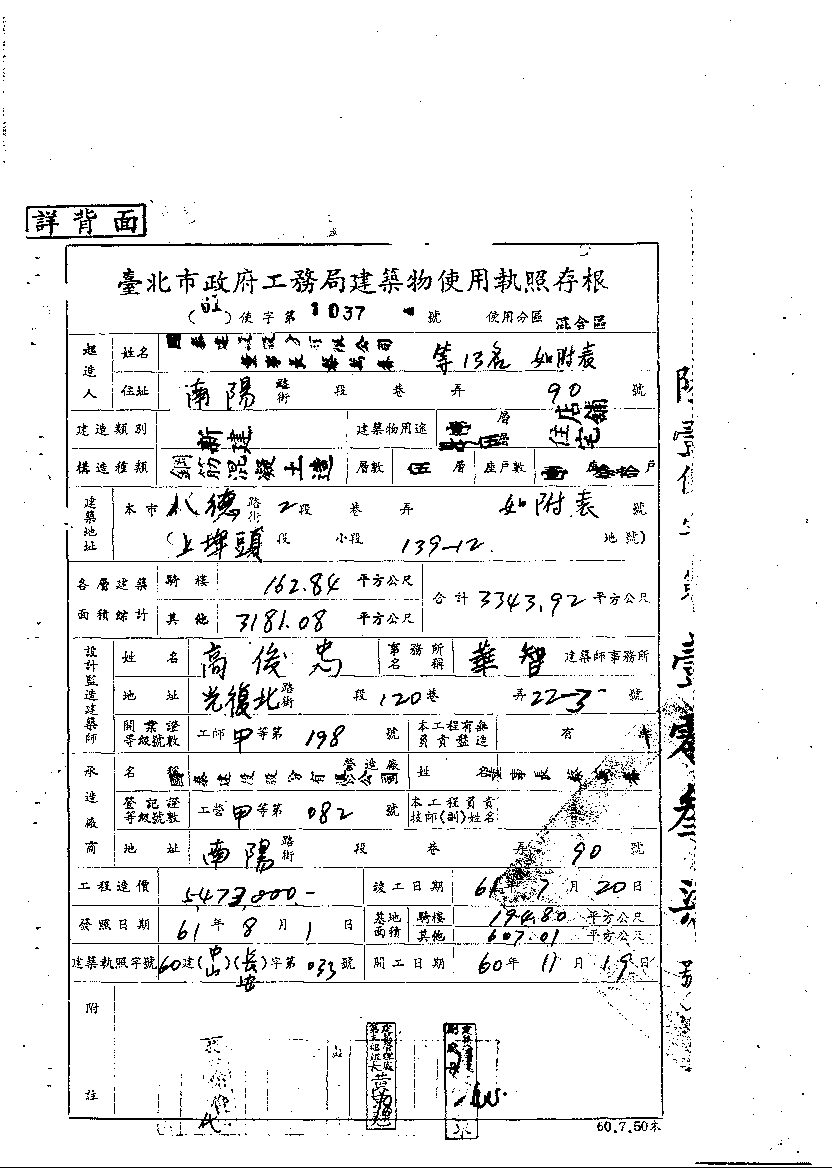 詳背面
臺北市政府工務局建築物使用執照存根
使字第 1037 號 使用分區 混合區
起造人 姓名 等13名 如附表
住址 南陽 路街 段 巷 弄 90 號
建造類別 新建 建築物用途 層 店舖 住宅
構造種類 鋼筋混凝土造 層數 層 座戶數 戶
建築地址 本市 八德 路街 2段 巷 弄 如附表 號
(上埤頭 段 小段 139-12 地號)
各層建築面積總計 騎樓 162.84 平方公尺 合計 3343.92 平方公尺
其他 3181.08 平方公尺
設計監造建築師 姓名 高俊忠 事務所名稱 華智 建築師事務所
地址 光復北 路街 段 120巷 弄 22-3 號
開業證等級號數 工師甲等第 198 號 本工程有無負責監造 有
承造廠商 名稱 營造廠 姓名
登記證等級號數 工營甲等第 082 號 本工程負責技師(副)姓名
地址 南陽 路街 段 巷 弄 90 號
工程造價 竣工日期 61年7月20日
發照日期 61年8月1日 基地面積 騎樓 194.80 平方公尺
其他 607.01 平方公尺
建築執照字號 60建(中山)(長安)字第 033號 開工日期 60年11月19日
附註
60.7.50本